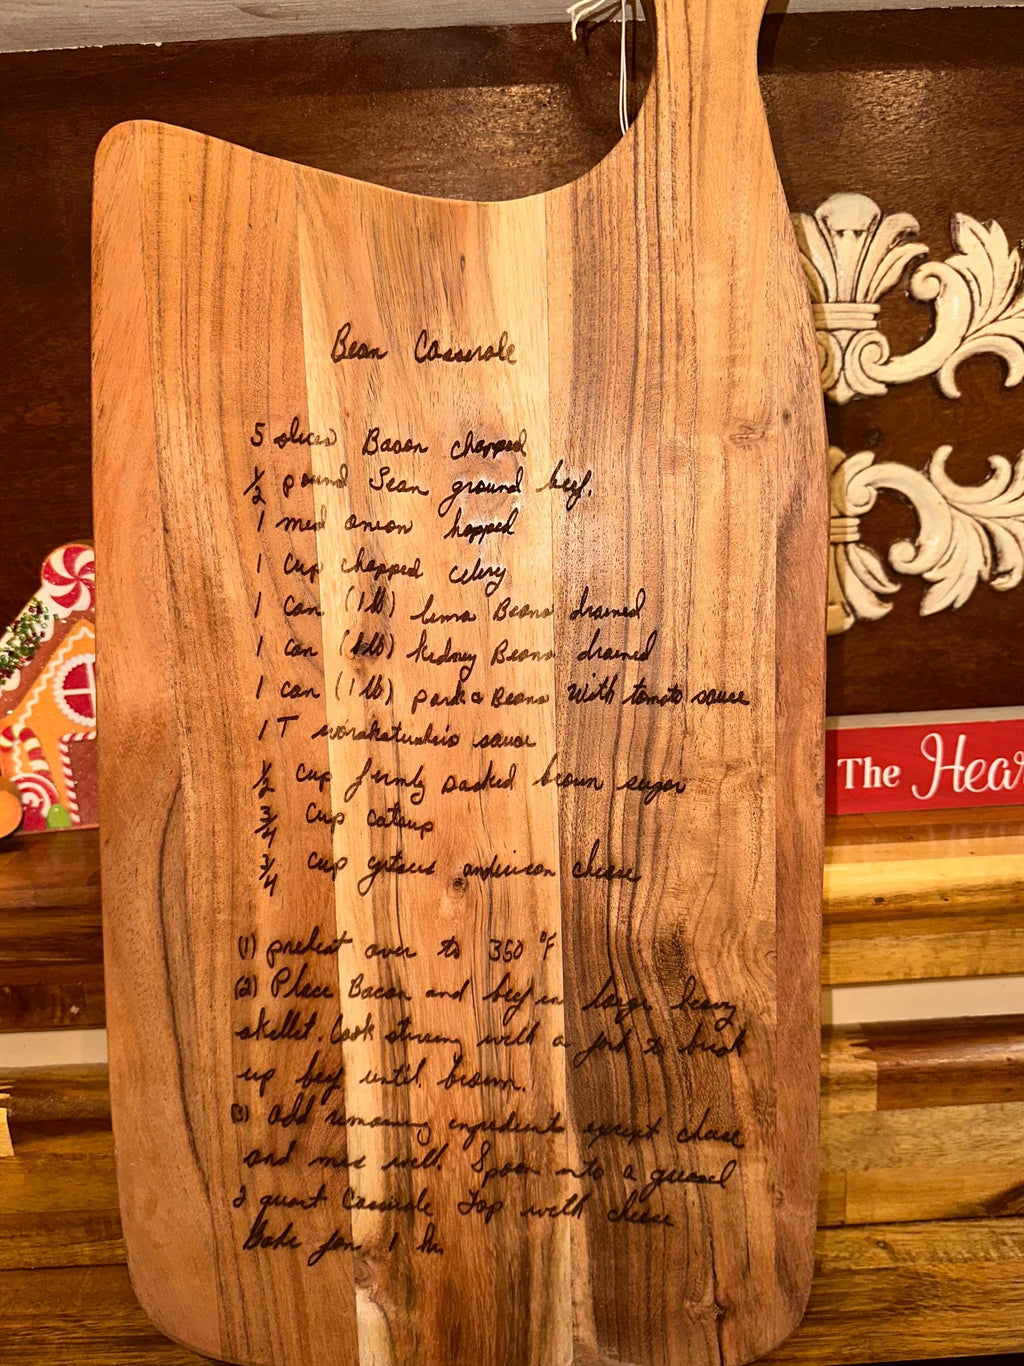 Bean Casserole
5 slices Bacon chopped
1/2 pound Lean ground beef.
1 med onion hopped
1 cup chopped celery
1 can (1 lb) lima Beans drained
1 can (1 lb) kidney Beans drained
1 can (1 lb) pork & Beans with tomato sauce
1 T sauce
1/2 cup firmly packed brown sugar
3/4 cup catsup
3/4 cup american cheese
(1) preheat oven to 350 °F
(2) Place Bacon and beef in large heavy
skellet. Cook with a fork to
up beef until brown.
(3) add remaining ingredients except cheese
and mix well. Spoon into a greased
2 quart Casserole Top with cheese
Bake for 1 hr.
The Hear